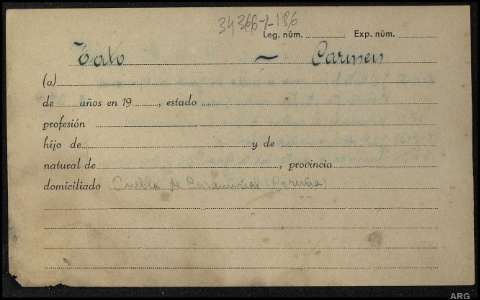 34366-1-186
Leg. núm. Exp. núm.
Tato ~ Carmen
(a)
de años en 19, estado
profesión
hijo de y de
natural de, provincia
domiciliado Puebla de Caramiñal (Coruña)
ARG